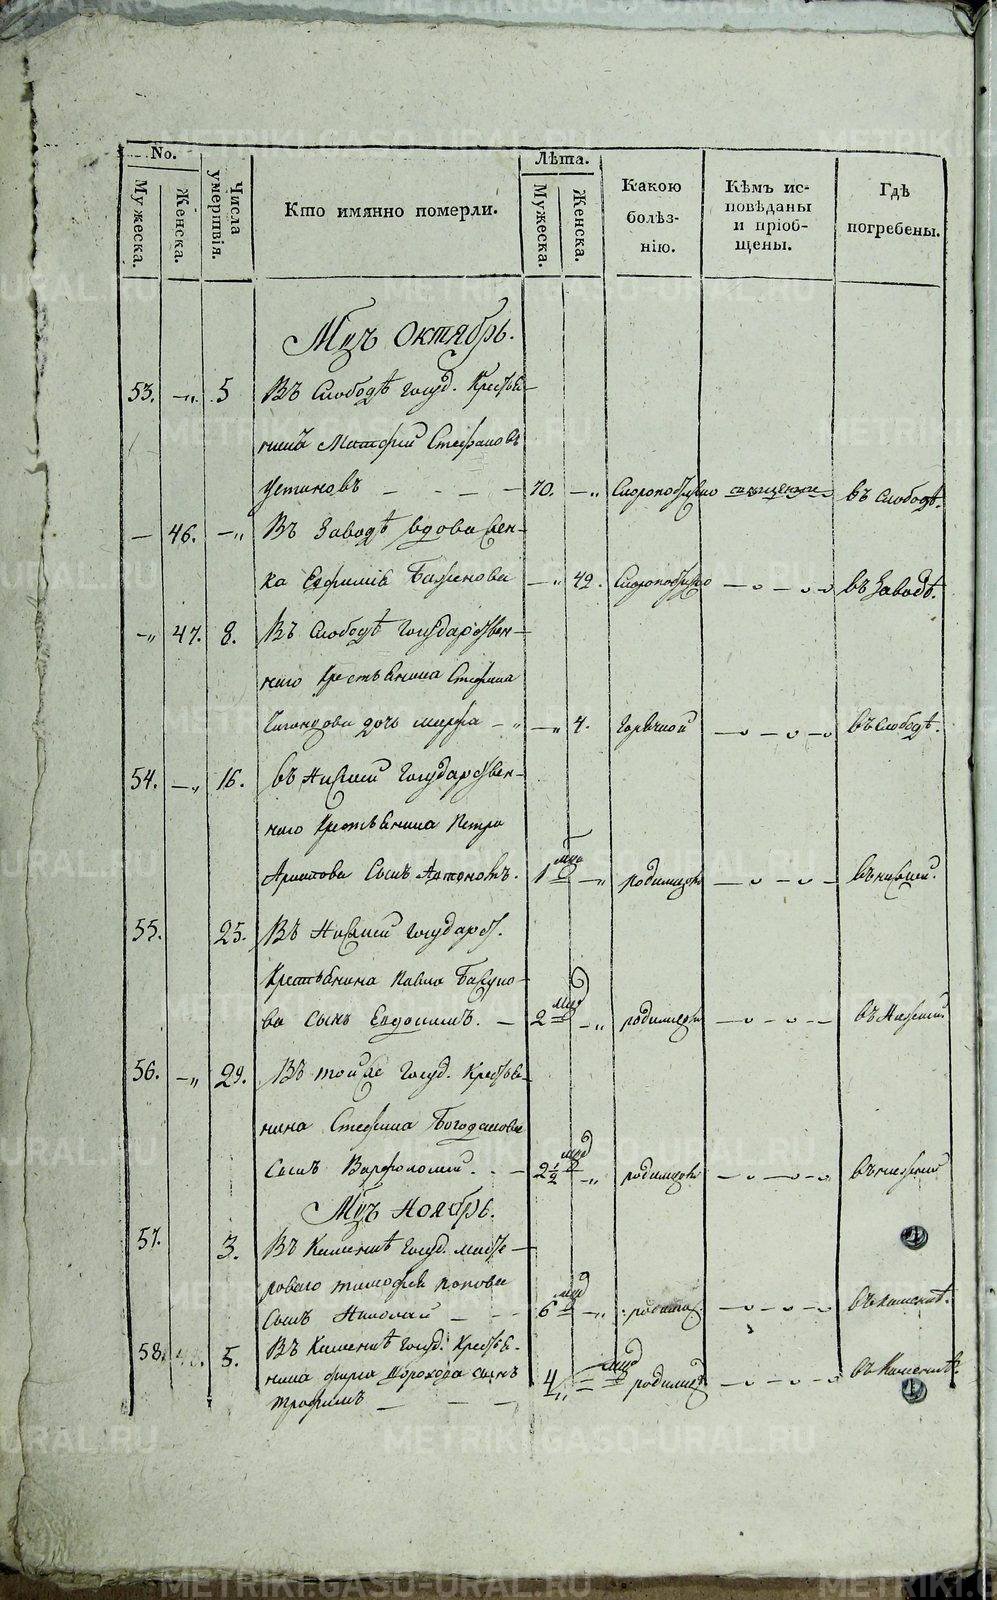 No.
Мужеска.
Женска.
Числа умертвія.
Кто имянно померли.
Лѣта.
Мужеска.
Женска.
Какою болѣз-нію.
Кѣмъ ис-повѣданы и пріоб-щены.
Гдѣ погребены.
Мцъ Октябрь.
53. -„ 5 Въ Слободѣ госуд. Крестья-
нинъ Матфій Стефановъ
Устиновъ - - - - 70. -„ Скоропостижно священже въ Слободѣ.
- 46. -„ Въ Заводѣ вдова
ка Евфимія Баженова -„ 49. Скоропостижно въ Заводѣ.
-„ 47. 8. Въ Слободѣ Государствен-
наго Крестьянина Стефана
дочь Марфа -„ -„ 4. горячкой въ Слободѣ.
54. -„ 16. въ Нижней Государствен-
наго Крестьянина Петра
Сынъ Антоновъ. 1 мца -„ родимцомъ въ нижней.
55. 25. Въ Нижней Государст.
Крестьянина Павла
ва Сынъ Евдокимъ. - 2 мцо -„ родимцомъ въ Нижней
56. -„ 29. Въ той же Госуд. Крестья-
нина Стефана Богданова
Сынъ Варфоломей. - - 2½ мцо -„ родимцомъ въ нижней
Мцъ Ноябрь.
57. 3. Въ Каменкѣ Госуд. масте-
роваго тимофея попова
Сынъ Николай - - 6 мцо -„ въ каменкѣ.
58. 5. Въ Каменкѣ Госуд. Крестья-
нина Дорохова сынъ
трофимъ - - - 4 мцо родимц. въ Каменкѣ.
METRIKI.GASO-URAL.RU